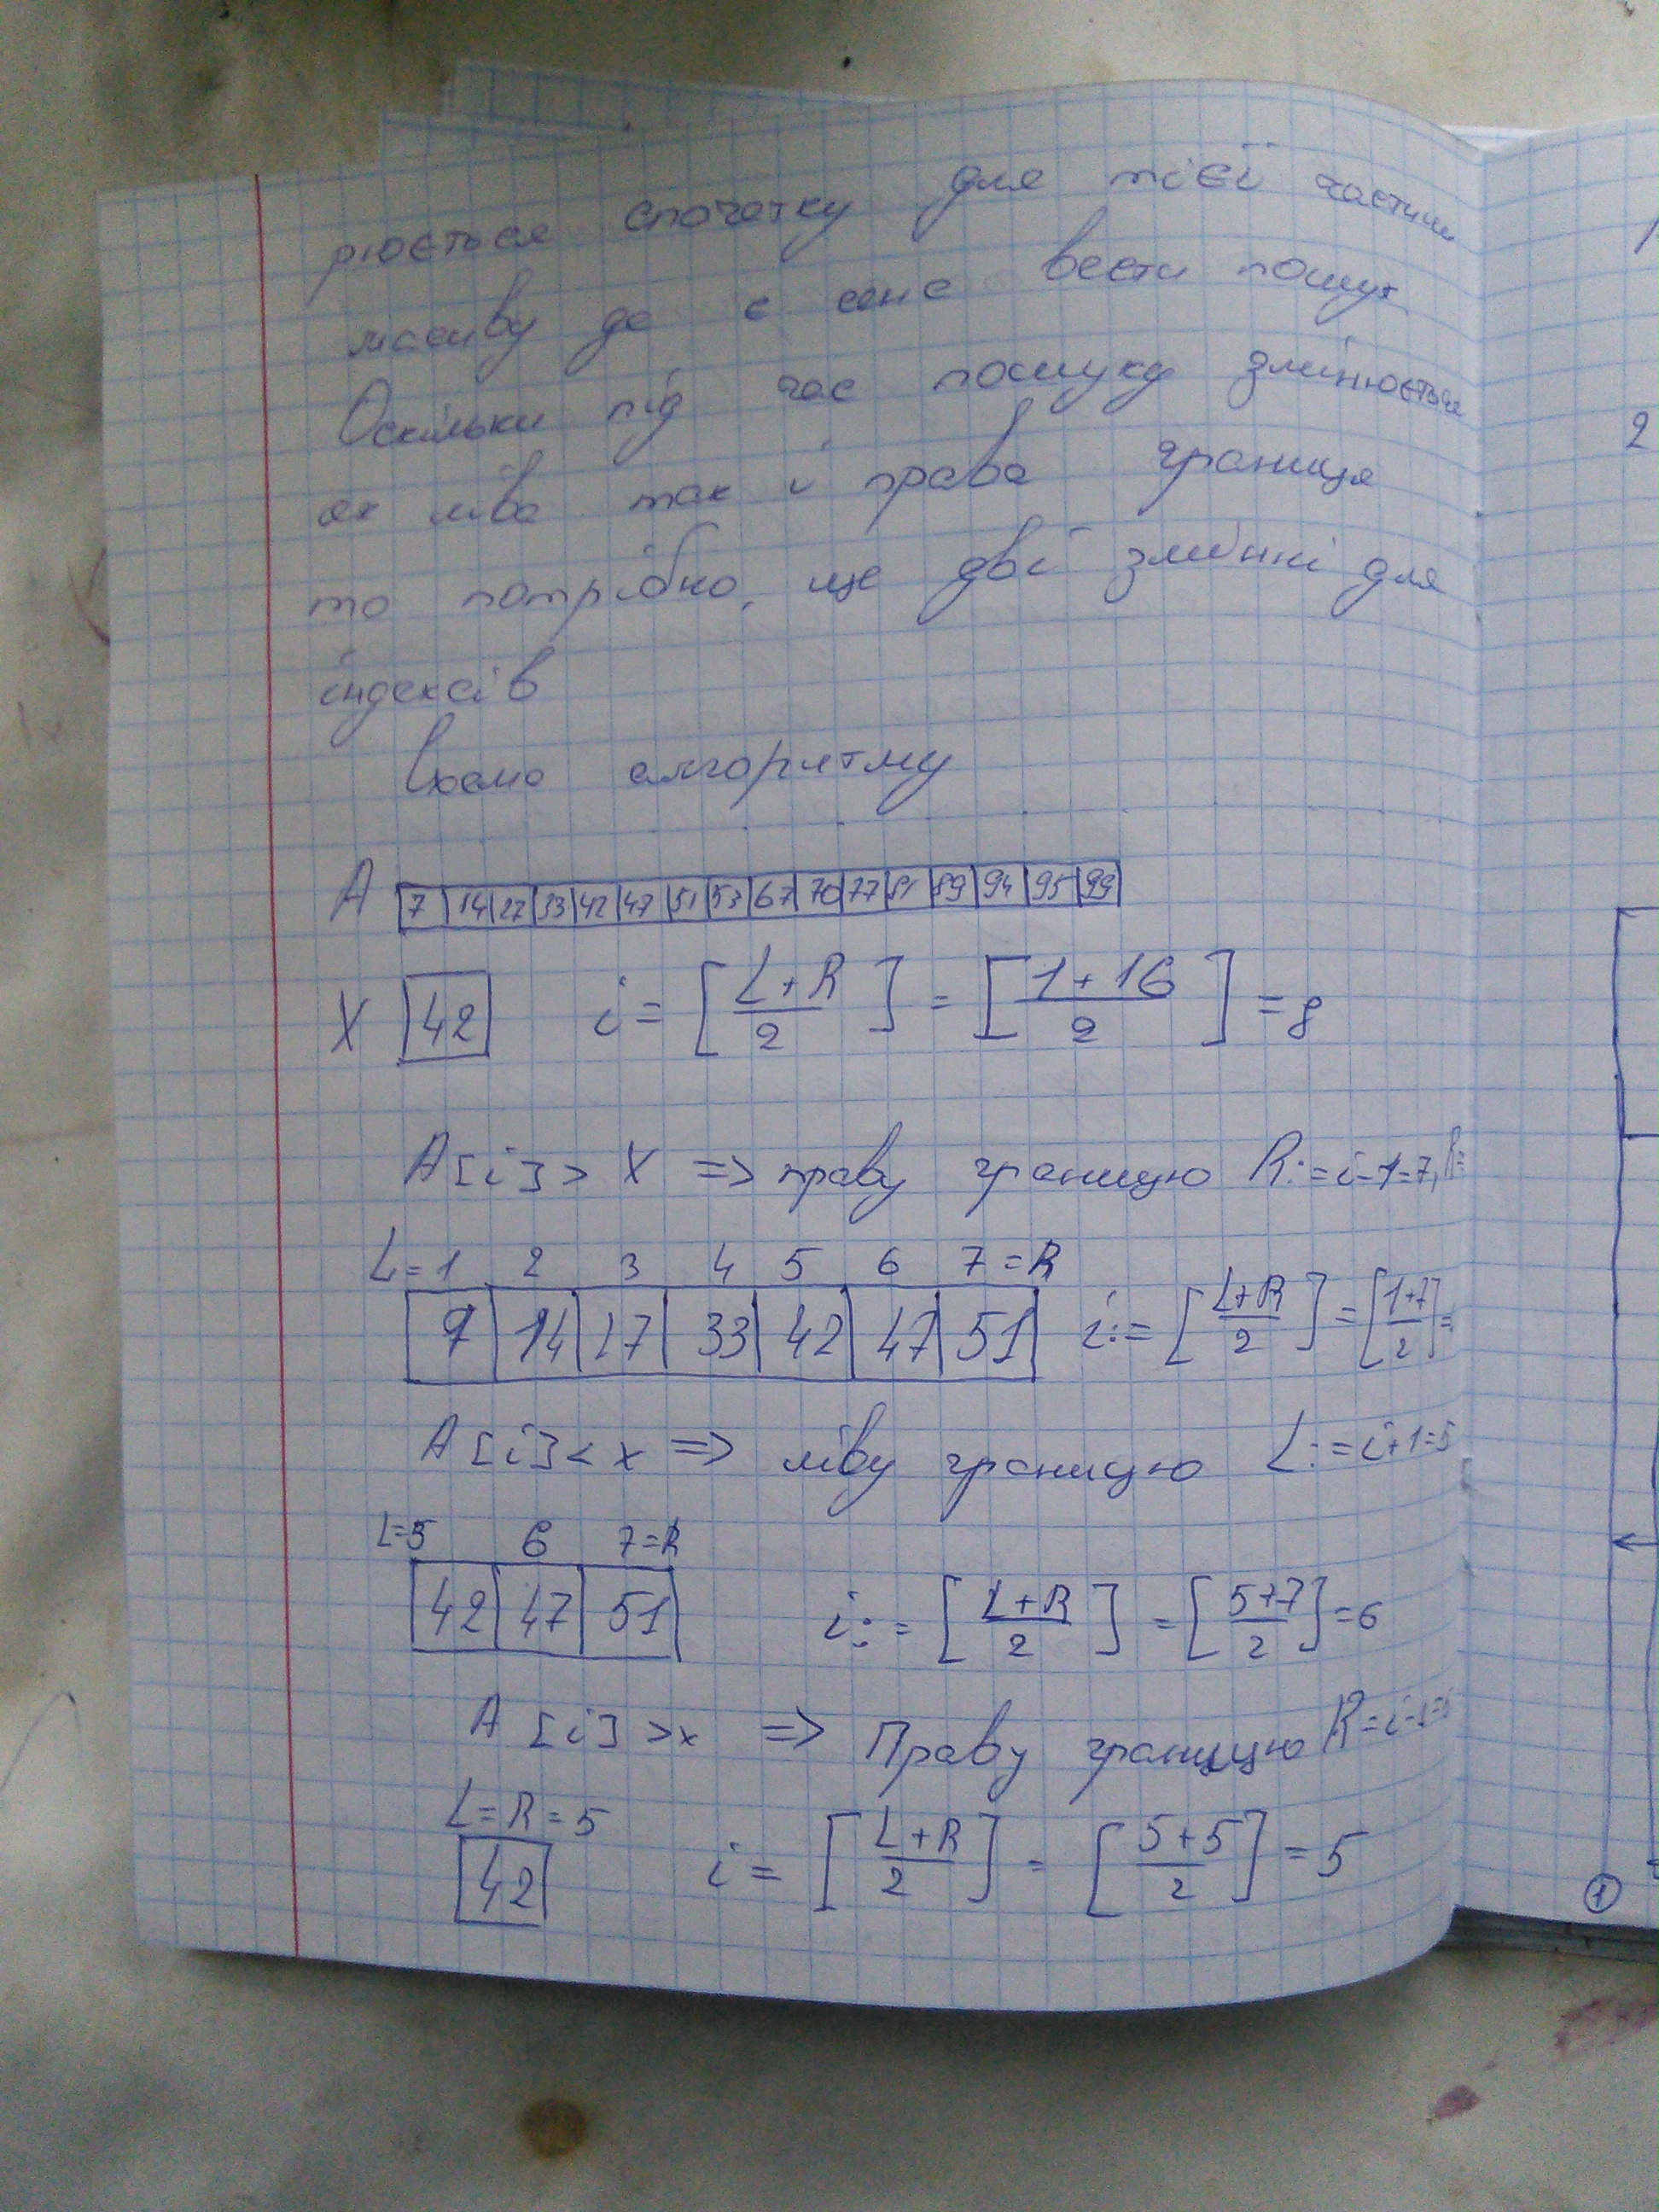 рюється спочатку для тієї частини
масиву де є сенс вести пошук
Оскільки під час пошуку змінюється
як ліва так і права границя
то потрібно, ще дві змінні для
індексів
Схема алгоритму
A 7 14 27 33 42 47 51 53 67 70 77 81 89 94 95 99
X 42 i = [L+R / 2] = [1+16 / 2] = 8
A[i] > X => праву границю R:=i-1=7, R=
L=1 2 3 4 5 6 7=R
7 14 27 33 42 47 51 i:= [L+R / 2] = [1+7 / 2] =
A[i] < x => ліву границю L:=i+1=5
L=5 6 7=R
42 47 51 i:= [L+R / 2] = [5+7 / 2] = 6
A[i] > x => Праву границю R=i-1=5
L=R=5
42 i = [L+R / 2] = [5+5 / 2] = 5
2
1